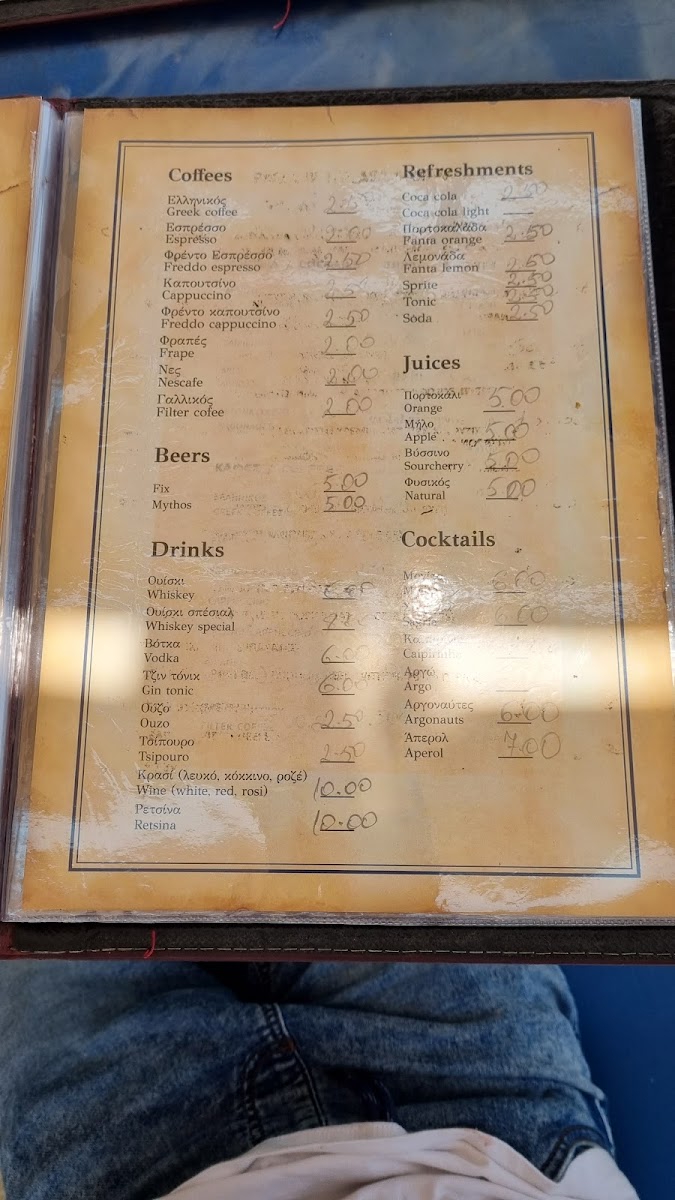 Coffees
Ελληνικός
Greek coffee
Εσπρέσσο
Espresso 2.00
Φρέντο Εσπρέσσο
Freddo espresso 2.50
Καπουτσίνο
Cappuccino
Φρέντο καπουτσίνο
Freddo cappuccino 2.50
Φραπές
Frape 2.00
Νες
Nescafe 2.00
Γαλλικός
Filter cofee 2.00
Beers
Fix 5.00
Mythos 5.00
Drinks
Ουίσκι
Whiskey
Ουίσκι σπέσιαλ
Whiskey special
Βότκα
Vodka 6.00
Τζιν τόνικ
Gin tonic 6.00
Ούζο
Ouzo 2.50
Τσίπουρο
Tsipouro 2.50
Κρασί (λευκό, κόκκινο, ροζέ)
Wine (white, red, rosi) 10.00
Ρετσίνα
Retsina 10.00
Refreshments
Coca cola 2.50
Coca cola light
Πορτοκαλάδα
Fanta orange 2.50
Λεμονάδα
Fanta lemon 2.50
Sprite 2.50
Tonic 2.50
Soda 2.50
Juices
Πορτοκάλι
Orange 5.00
Μήλο
Apple 5.00
Βύσσινο
Sourcherry 5.00
Φυσικός
Natural 5.00
Cocktails
6.00
6.00
Caipirinha
Αργώ
Argo
Αργοναύτες
Argonauts 6.00
Άπερολ
Aperol 7.00